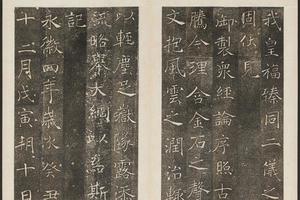 我皇福臻同二儀之
固伏見
御製衆經論序照古
騰今理含金石之聲
文抱風雲之潤治輒
以輕塵足嶽墜露添
流略舉大綱以爲斯
記
永徽四年歲次癸丑
十二月戊寅朔十日